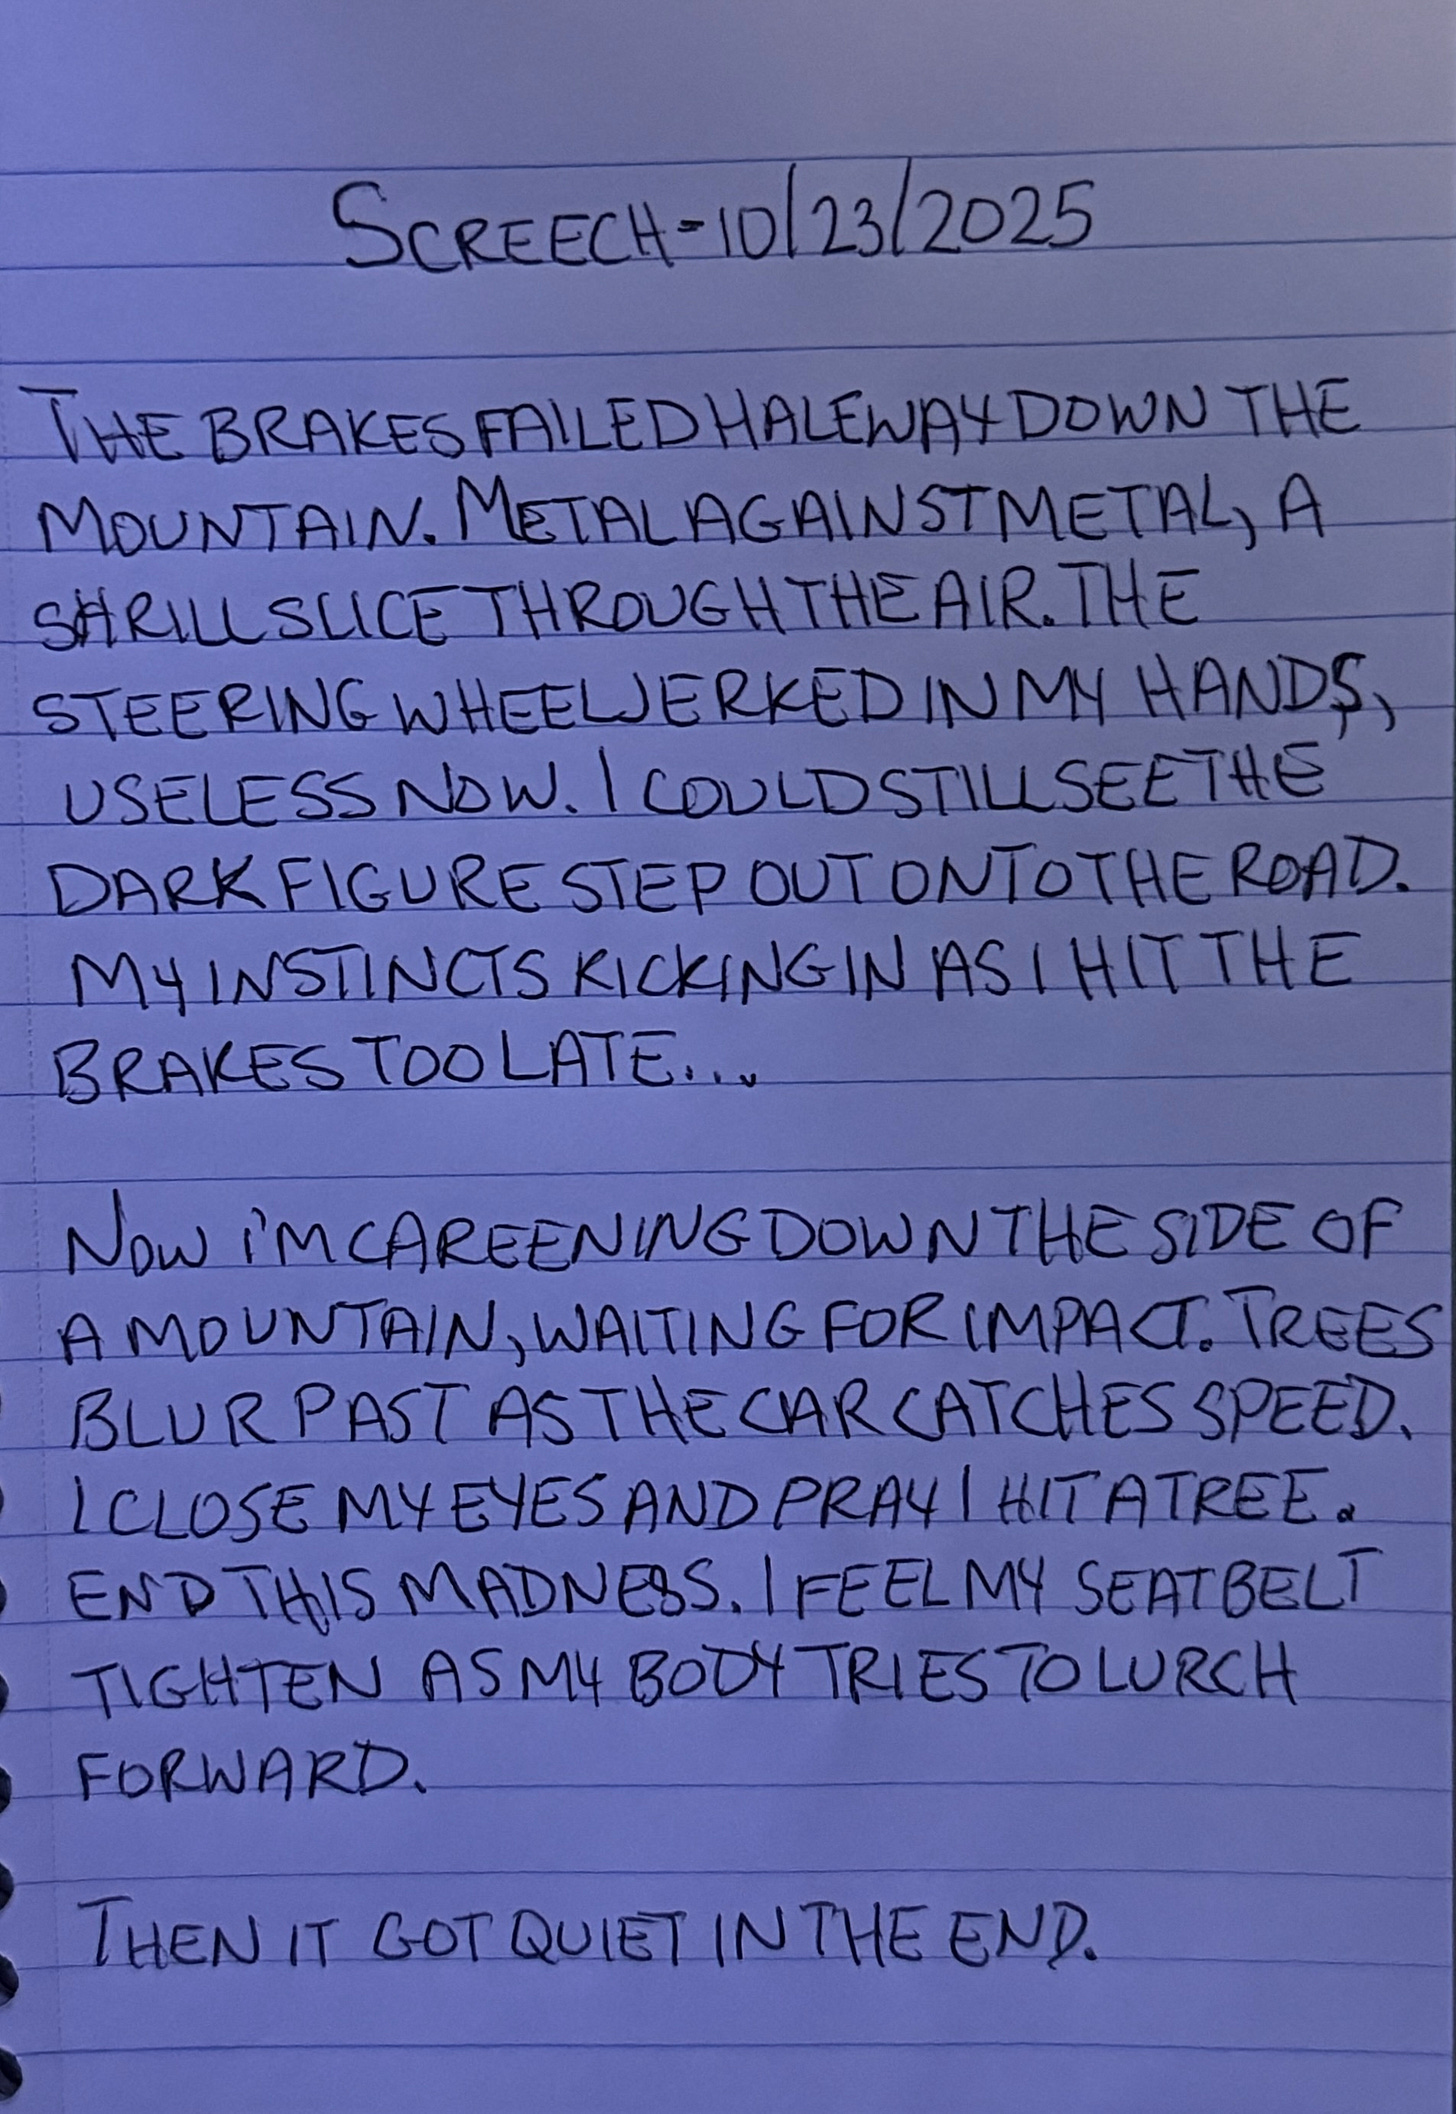 SCREECH-10/23/2025
THE BRAKES FAILED HALFWAY DOWN THE
MOUNTAIN. METAL AGAINST METAL, A
SHRILL SLICE THROUGH THE AIR. THE
STEERING WHEEL JERKED IN MY HANDS,
USELESS NOW. I COULD STILL SEE THE
DARK FIGURE STEP OUT ONTO THE ROAD.
MY INSTINCTS KICKING IN AS I HIT THE
BRAKES TOO LATE...
NOW I'M CAREENING DOWN THE SIDE OF
A MOUNTAIN, WAITING FOR IMPACT. TREES
BLUR PAST AS THE CAR CATCHES SPEED.
I CLOSE MY EYES AND PRAY I HIT A TREE.
END THIS MADNESS. I FEEL MY SEATBELT
TIGHTEN AS MY BODY TRIES TO LURCH
FORWARD.
THEN IT GOT QUIET IN THE END.